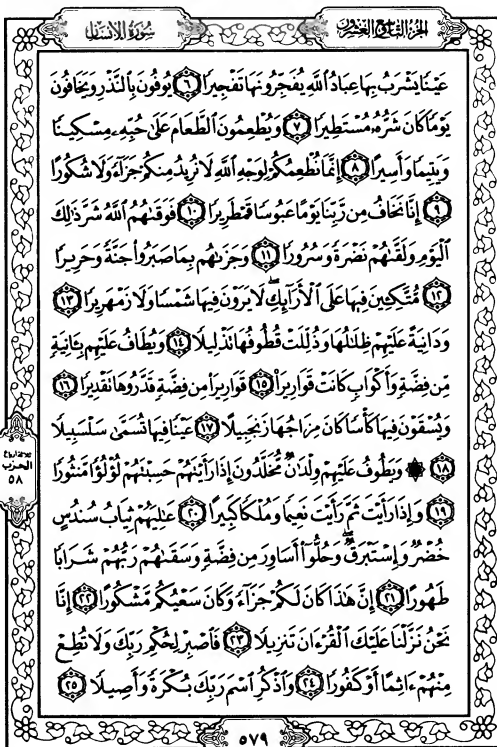 سُورَةُ الإِنسَان
الجُزْءُ التَّاسِعُ وَالعِشْرُونَ
عَيْنًا يَشْرَبُ بِهَا عِبَادُ ٱللَّهِ يُفَجِّرُونَهَا تَفْجِيرًا ٦ يُوفُونَ بِٱلنَّذْرِ وَيَخَافُونَ
يَوْمًا كَانَ شَرُّهُۥ مُسْتَطِيرًا ٧ وَيُطْعِمُونَ ٱلطَّعَامَ عَلَىٰ حُبِّهِۦ مِسْكِينًا
وَيَتِيمًا وَأَسِيرًا ٨ إِنَّمَا نُطْعِمُكُمْ لِوَجْهِ ٱللَّهِ لَا نُرِيدُ مِنكُمْ جَزَآءً وَلَا شُكُورًا
٩ إِنَّا نَخَافُ مِن رَّبِّنَا يَوْمًا عَبُوسًا قَمْطَرِيرًا ١٠ فَوَقَىٰهُمُ ٱللَّهُ شَرَّ ذَٰلِكَ
ٱلْيَوْمِ وَلَقَّىٰهُمْ نَضْرَةً وَسُرُورًا ١١ وَجَزَىٰهُم بِمَا صَبَرُوا۟ جَنَّةً وَحَرِيرًا
١٢ مُّتَّكِـِٔينَ فِيهَا عَلَى ٱلْأَرَآئِكِ ۖ لَا يَرَوْنَ فِيهَا شَمْسًا وَلَا زَمْهَرِيرًا ١٣
وَدَانِيَةً عَلَيْهِمْ ظِلَٰلُهَا وَذُلِّلَتْ قُطُوفُهَا تَذْلِيلًا ١٤ وَيُطَافُ عَلَيْهِم بِـَٔانِيَةٍ
مِّن فِضَّةٍ وَأَكْوَابٍ كَانَتْ قَوَارِيرَا۠ ١٥ قَوَارِيرَا۟ مِن فِضَّةٍ قَدَّرُوهَا تَقْدِيرًا ١٦
وَيُسْقَوْنَ فِيهَا كَأْسًا كَانَ مِزَاجُهَا زَنجَبِيلًا ١٧ عَيْنًا فِيهَا تُسَمَّىٰ سَلْسَبِيلًا
١٨ ۞ وَيَطُوفُ عَلَيْهِمْ وِلْدَٰنٌ مُّخَلَّدُونَ إِذَا رَأَيْتَهُمْ حَسِبْتَهُمْ لُؤْلُؤًا مَّنثُورًا
١٩ وَإِذَا رَأَيْتَ ثَمَّ رَأَيْتَ نَعِيمًا وَمُلْكًا كَبِيرًا ٢٠ عَٰلِيَهُمْ ثِيَابُ سُندُسٍ
خُضْرٌ وَإِسْتَبْرَقٌ ۖ وَحُلُّوٓا۟ أَسَاوِرَ مِن فِضَّةٍ وَسَقَىٰهُمْ رَبُّهُمْ شَرَابًا
طَهُورًا ٢١ إِنَّ هَٰذَا كَانَ لَكُمْ جَزَآءً وَكَانَ سَعْيُكُم مَّشْكُورًا ٢٢ إِنَّا
نَحْنُ نَزَّلْنَا عَلَيْكَ ٱلْقُرْءَانَ تَنزِيلًا ٢٣ فَٱصْبِرْ لِحُكْمِ رَبِّكَ وَلَا تُطِعْ
مِنْهُمْ ءَاثِمًا أَوْ كَفُورًا ٢٤ وَٱذْكُرِ ٱسْمَ رَبِّكَ بُكْرَةً وَأَصِيلًا ٢٥
الحزب
٥٨
٥٧٩